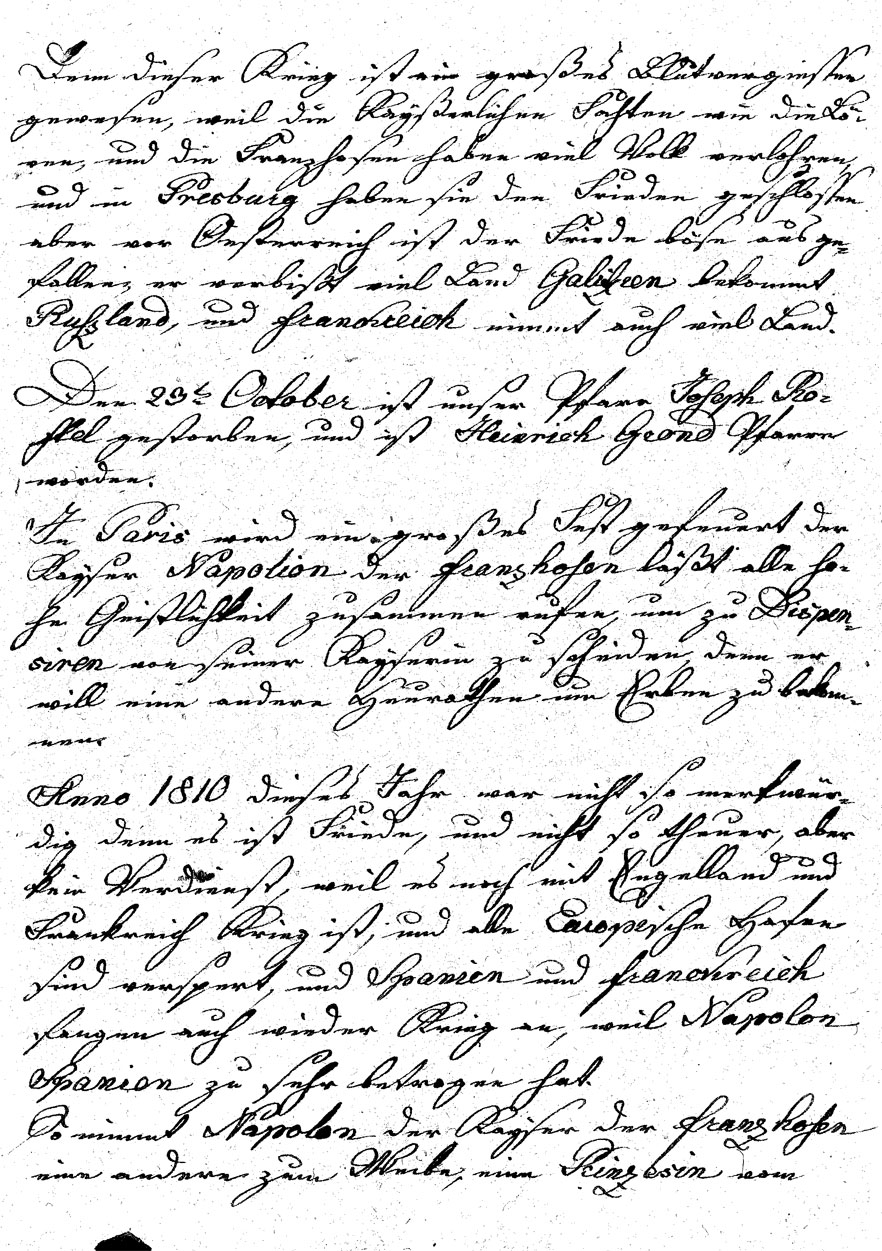 Denn dieser Krieg ist ein großes Blutvergiessen
gewesen, weil die Kayßerlichen Fohten wie die Lö-
wen, und die Franzhosen haben viel Volk verlohren,
und in Presburg haben sie den Frieden geschlossen
aber vor Oesterreich ist der Friede böse ausge=
fallen, er verbißt viel Land Galizien bekommt
Rußland, und franckreich nimmt auch viel Land.
Den 23t October ist unser Pfarr Joseph
gestorben, und ist Heinrich Pfarrer
worden.
In Paris wird ein großes Fest gefeuert der
Kayser Napolion der franzhosen läßt alle ho-
he Geistlichkeit zusammen rufen, um zu Dispen-
siren von seiner Kayserin zu scheiden, denn er
will eine andere Heurathen um Erben zu bekom-
men.
Anno 1810 dieses Jahr war nicht so merkwür-
dig denn es ist Friede, und nicht so theuer, aber
kein Verdienst, weil es noch mit Engelland und
Frankreich Krieg ist, und alle Europeische Hafen
sind verspert, und Spanien und franckreich
fangen auch wieder Krieg an, weil Napolon
Spanien zu sehr betrogen hat.
So nimmt Napolon der Kayser der franzhosen
eine andere zum Weibe, eine Prinzesin vom